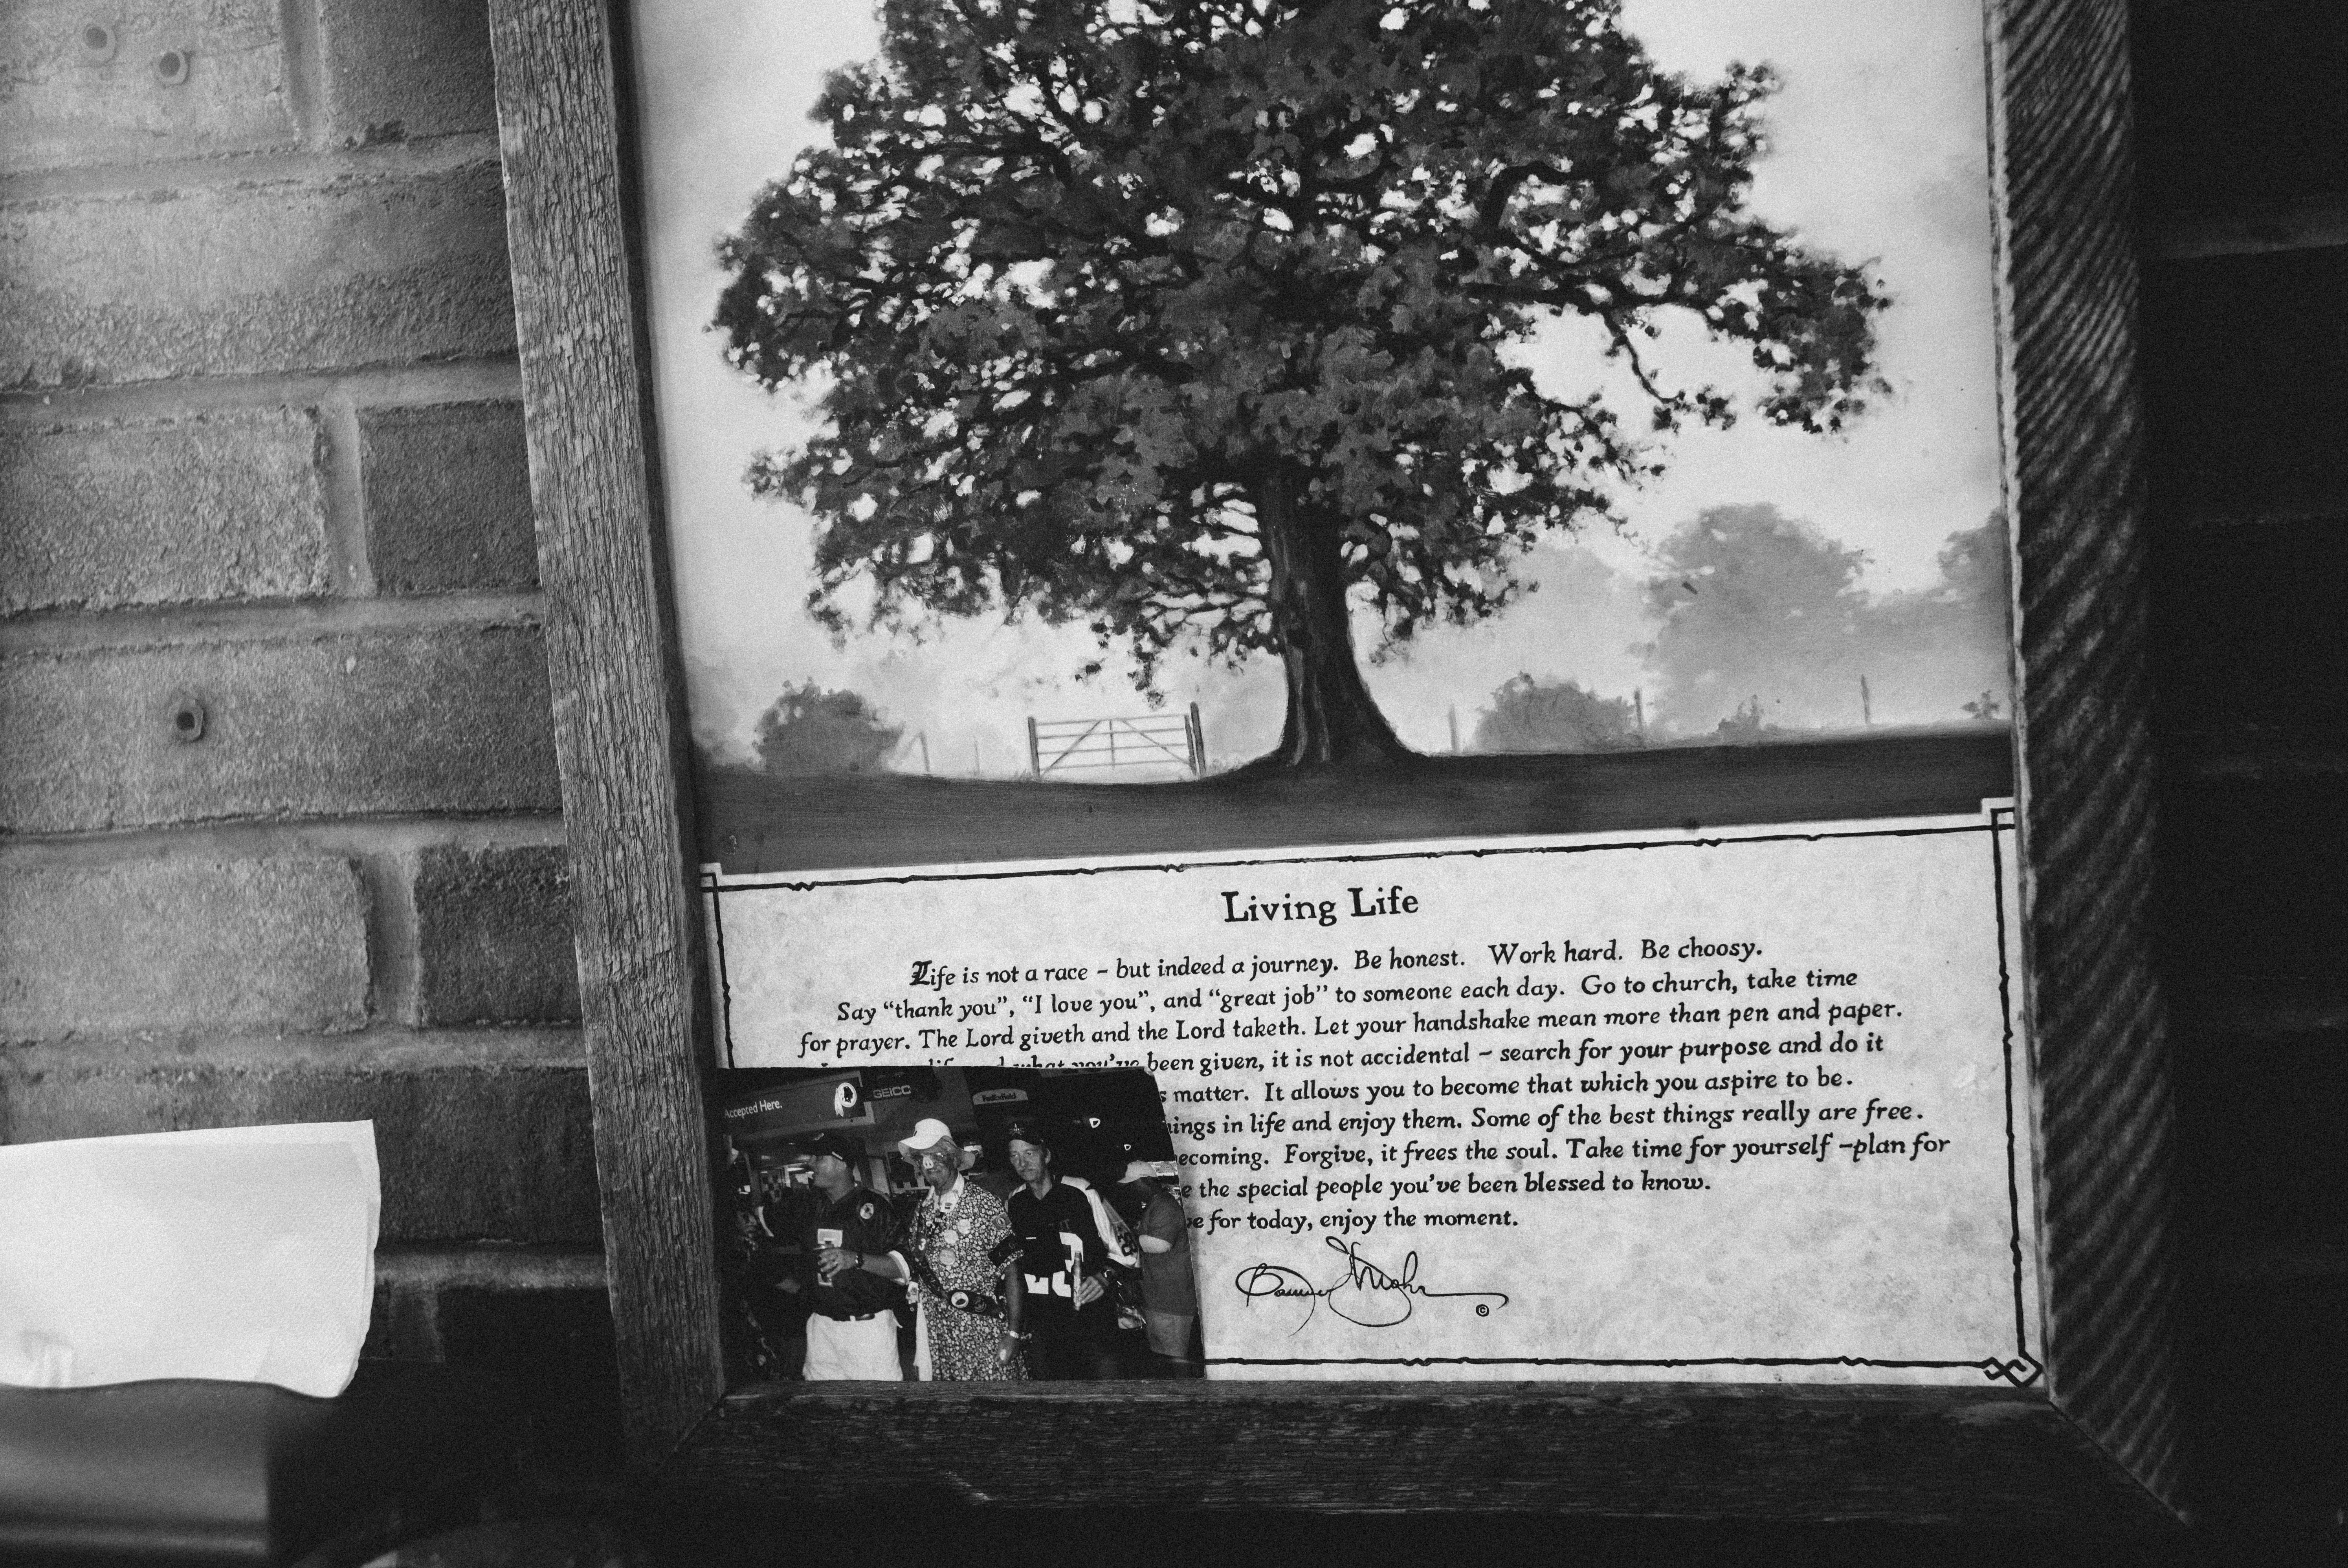 Living Life
Life is not a race – but indeed a journey. Be honest. Work hard. Be choosy.
Say “thank you”, “I love you”, and “great job” to someone each day. Go to church, take time
for prayer. The Lord giveth and the Lord taketh. Let your handshake mean more than pen and paper.
what you've been given, it is not accidental – search for your purpose and do it
matter. It allows you to become that which you aspire to be.
in life and enjoy them. Some of the best things really are free.
Forgive, it frees the soul. Take time for yourself –plan for
the special people you've been blessed to know.
for today, enjoy the moment.
©
Accepted Here.
GEICO
FedExField